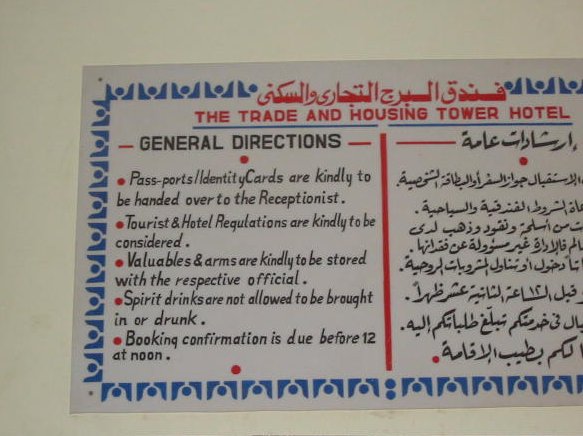 فندق البرج التجاري والسكنى
THE TRADE AND HOUSING TOWER HOTEL
GENERAL DIRECTIONS
• Pass-ports/Identity Cards are kindly to
be handed over to the Receptionist.
• Tourist & Hotel Regulations are kindly to be
considered.
• Valuables & arms are kindly to be stored
with the respective official.
• Spirit drinks are not allowed to be brought
in or drunk.
• Booking confirmation is due before 12
at noon.
إرشادات عامة
الاستقبال جواز السفر أو البطاقة الشخصية.
الشروط الفندقية والسياحية.
من أسلحة ونقود وذهب لدى
فالإدارة غير مسئولة عن فقدانها.
دخول أو تناول المشروبات الروحية.
قبل الساعة ١٢ الثانية عشر ظهراً.
فى خدمتكم تبلغ طلباتكم إليه.
لكم بطيب الاقامة.